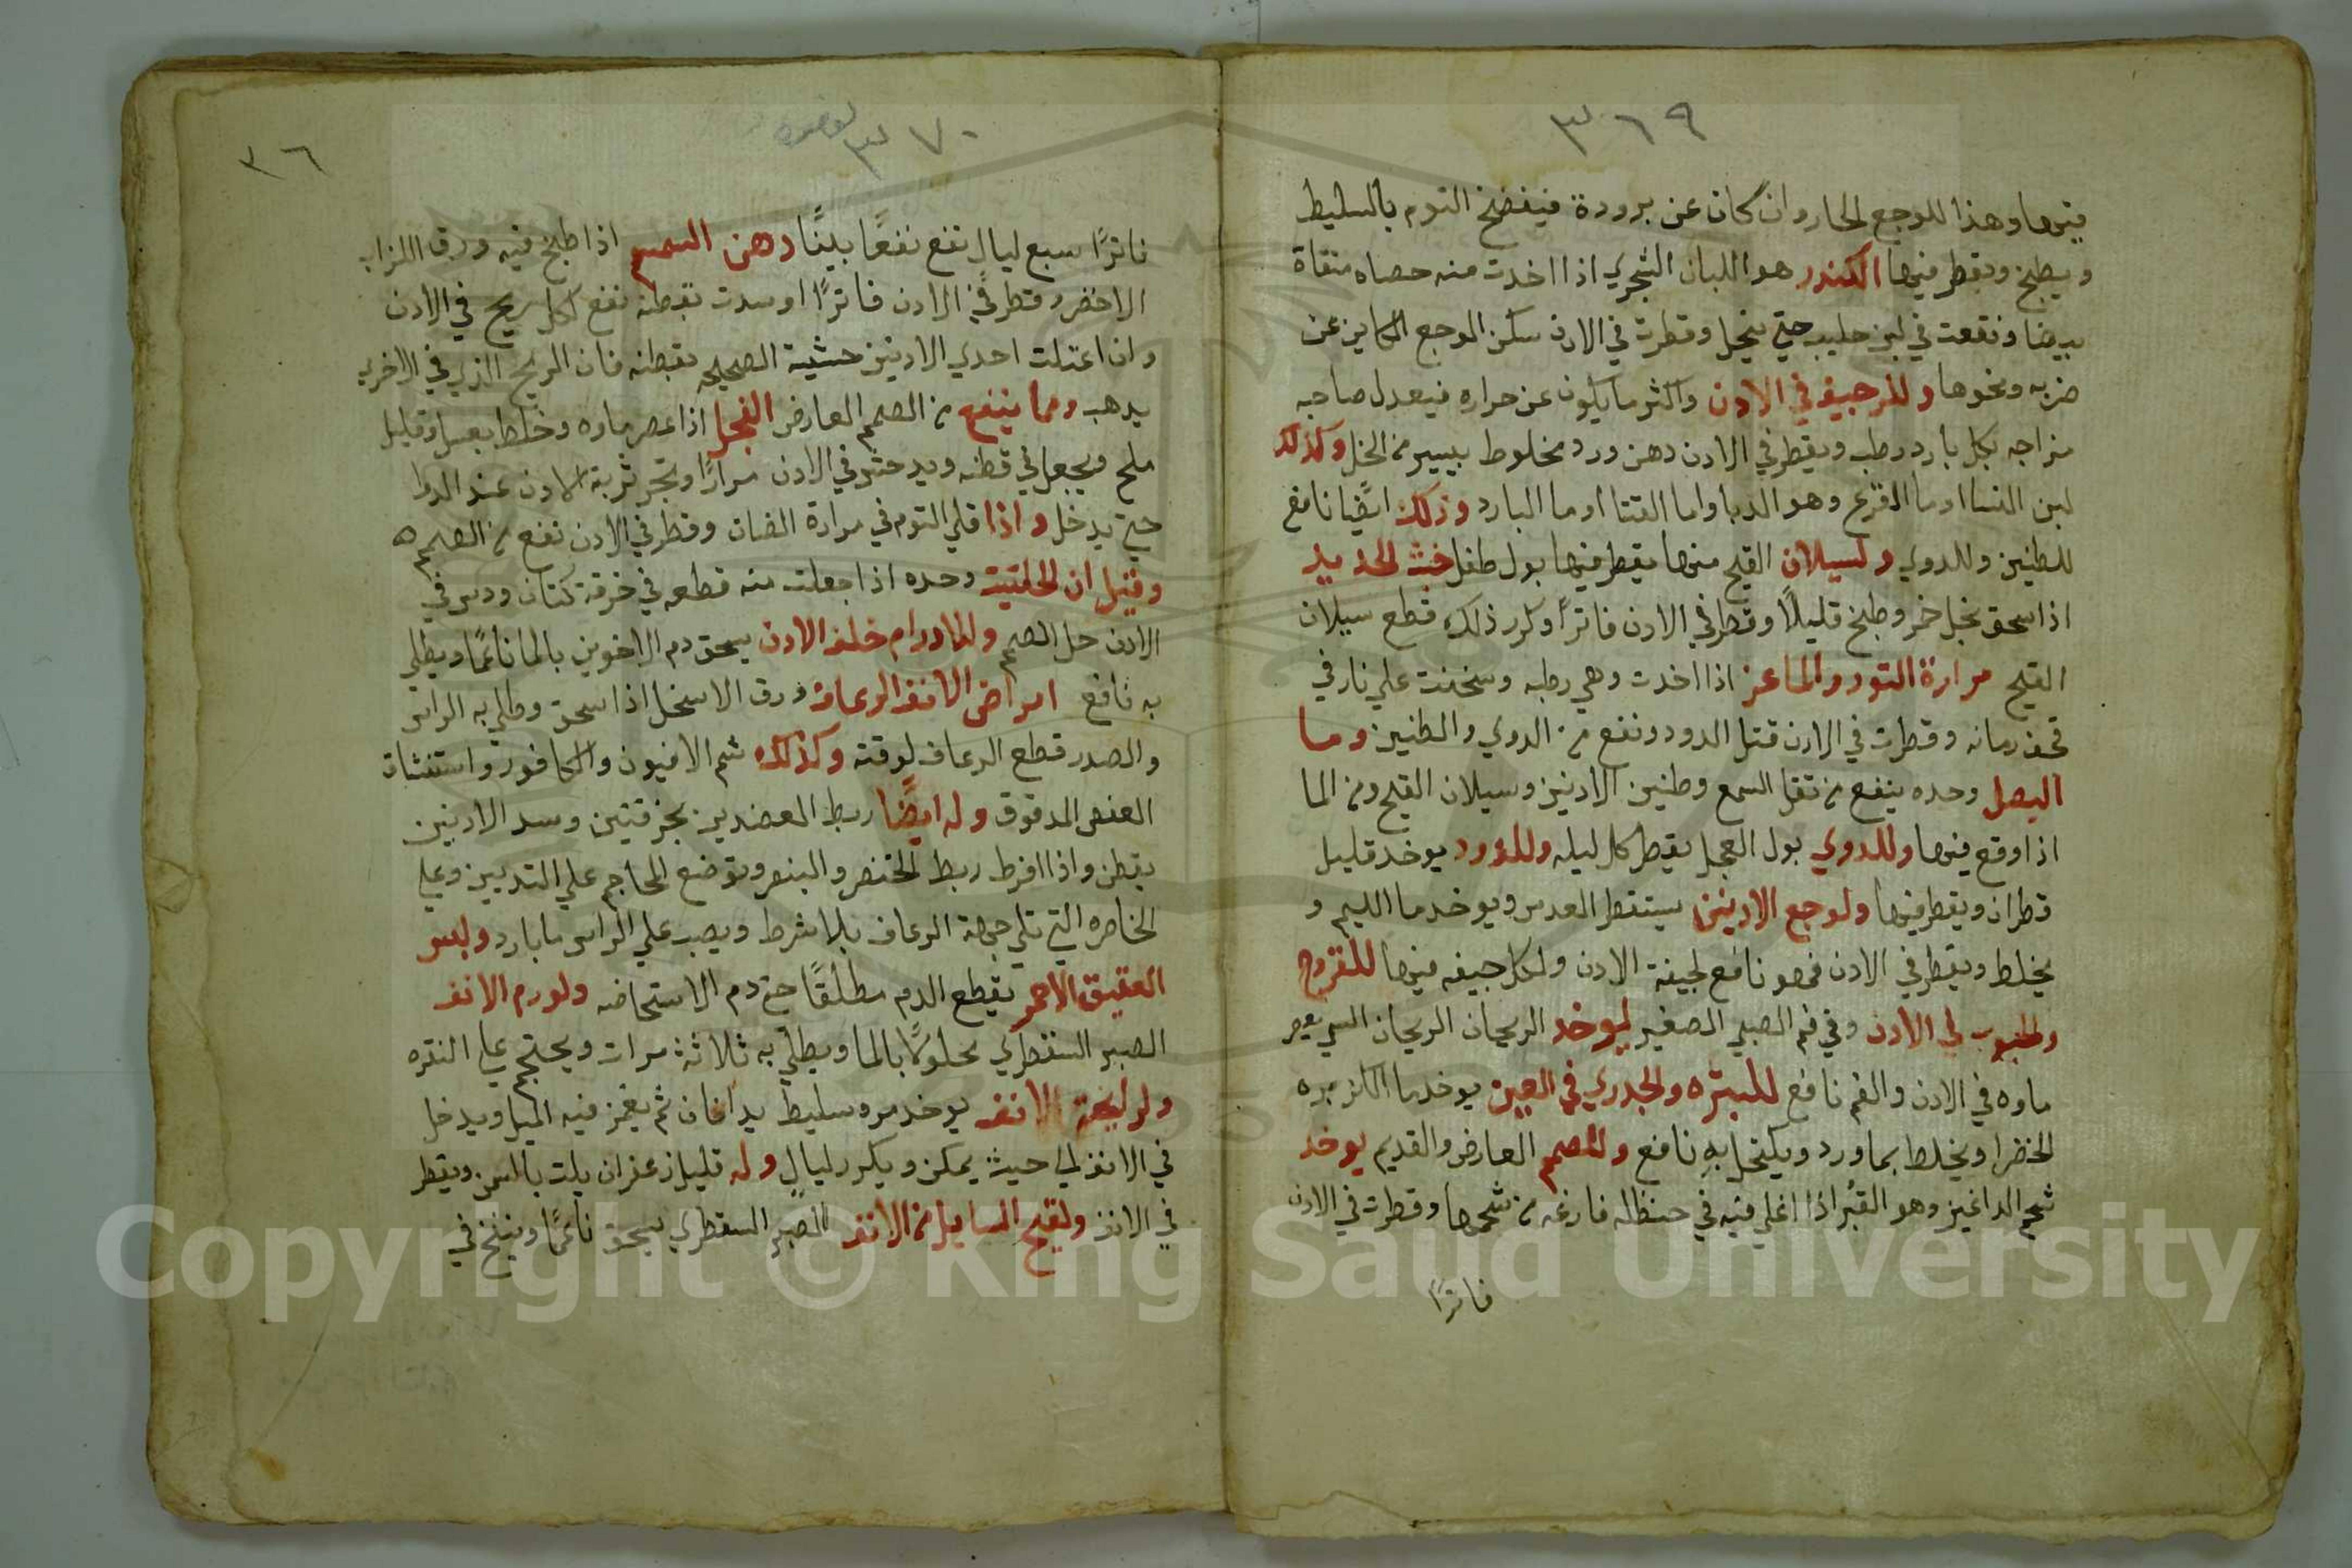 ٣٦٩
فيها وهذا للوجع الحار وان كان عن برودة فيفضخ التوم بالسليط
ويطبخ ويقطر فيها الكندر هو اللبان الشجري اذا اخدت منه حصاه منقاة
بيضا ونقعت في لبن حليب حتي ينحل وقطرت في الادن سكن الوجع الكاين عن
ضربه ونحوها وللرجيف في الادن واكثر ما يكون عن حراره فيعدل صاحبه
مزاجه بكل بارد رطب ويقطر في الادن دهن ورد مخلوط بيسير من الخل وكذلك
لبن النسا او ما القرع وهو الدبا واما القتا او ما البارد وذلك ايضًا نافع
للطنين وللدوي ولسيلان القيح منها يقطر فيها بول طفل خبث الحديد
اذا سحق بخل خمر وطبخ قليلًا وقطر في الادن فاترًا وكرر ذلك قطع سيلان
القيح مرارة التور والماعز اذا اخدت وهي رطبه وسخنت علي نار في
قحف رمانه وقطرت في الادن قتل الدود ونفع من الدوي والطنين وما
البصل وحده ينفع من تقل السمع وطنين الادنين وسيلان القيح ومن الما
اذا وقع فيها وللدوي بول العجل يقطر كل ليله وللدود يوخد قليل
قطران ويقطر فيها ولوجع الادنين يستقطر العدس ويوخد ما الليم و
يخلط ويقطر في الادن فهو نافع لجيفة الادن ولكل جيفه فيها للقروح
والحبوب في الادن وفي فم الصبي الصغير يوخد الريحان الريحان يعصر
ماوه في الادن والفم نافع للبتره والجدري في العين يوخد ما الكزبره
الخضرا ويخلط بماورد ويكتحل به نافع وللصمم العارض والقديم يوخد
شحم الداغيز وهو القبر اذا اغلي فيه في حنظله فارغه من شحمها وقطرت في الادن
فاترًا
٣٧٠
٣٦
فاترًا سبع ليال نفع نفعًا بينًا دهن السمسم اذا طبخ فيه ورق
الاخضر وقطر في الادن فاترًا او سدت بقطنه نفع لكل ريح في الادن
وان اعتلت احدي الادنين حشيت الصحيحه بقطنه فان الريح الذي في الاخري
يدهب ومما ينفع من الصمم العارض الفجل اذا عصر ماوه وخلط بعسل وقليل
ملح ويجعل في قطنه ويدحش في الادن مرارًا وتجر تربة الادن عند الدوا
حتي يدخل واذا قلي التوم في مرارة الضان وقطر في الادن نفع من الصمم ه
وقيل ان الحلتيت وحده اذا جعلت منه قطعه في خرقة كتان ودس في
الادن حل الصمم وللاورام خلف الادن يسحق دم الاخوين بالما ناعمًا ويطلي
به نافع امراض الانف الرعاف ورق الاسحل اذا سحق وطلي به الراس
والصدر قطع الرعاف لوقته وكذلك شم الافيون والكافور واستنشاق
العفص المدقوق وله ايضًا ربط العضدين بخرقتين وسد الادنين
بقطن واذا افرط ربط الخنصر والبنصر وتوضع المحاجم علي التديين وعلي
الخاصره التي تلي جهة الرعاف بلا شرط ويصب علي الراس ما بارد ولبس
العقيق الاحمر يقطع الدم مطلقًا حتي دم الاستحاضه ولورم الانف
الصبر السقطري محلولًا بالما ويطلي به ثلاثة مرات ويحتجم علي النقره
ولرايحة الانف يوخد مر وسليط يدافان ثم يغمز فيه الميل ويدخل
في الانف الي حيث يمكن ويكرر ليالٍ وله قليل زعفران يلت بالسمن ويقطر
في الانف ولقيح السايل من الانف الصبر السقطري يسحق ناعمًا وينفخ في
Copyright © King Saud University